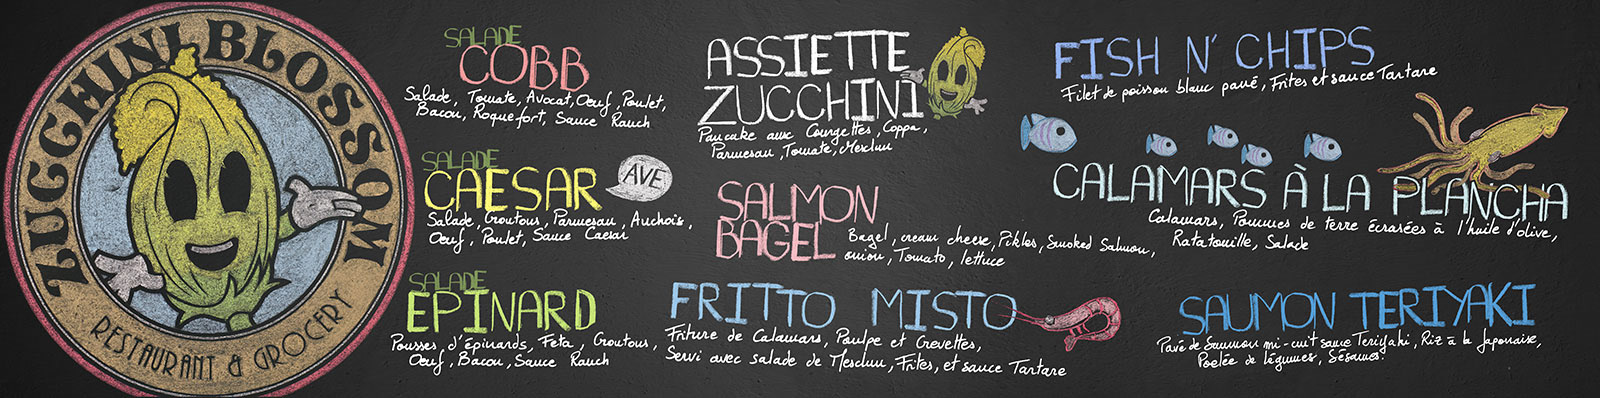 ZUCCHINI BLOSSOM
RESTAURANT & GROCERY
SALADE
COBB
Salade, Tomate, Avocat, Oeuf, Poulet,
Bacon, Roquefort, Sauce Ranch
SALADE
CAESAR
AVE
Salade, Croutons, Parmesan, Anchois,
Oeuf, Poulet, Sauce Caesar
SALADE
EPINARD
Pousses d'épinards, Feta, Croutons,
Oeuf, Bacon, Sauce Ranch
ASSIETTE
ZUCCHINI
Pancake aux Courgettes, Coppa,
Parmesan, Tomate, Mesclun
SALMON
BAGEL
Bagel, cream cheese, Pikles, Smoked Salmon,
onion, Tomato, lettuce
FRITTO MISTO
Friture de Calamars, Poulpe et Crevettes,
Servi avec salade de Mesclun, Frites, et sauce Tartare
FISH N' CHIPS
Filet de poisson blanc pané, Frites et sauce Tartare
CALAMARS À LA PLANCHA
Calamars, Pommes de terre écrasées à l'huile d'olive,
Ratatouille, Salade
SAUMON TERIYAKI
Pavé de Saumon mi-cuit sauce Teriyaki, Riz à la Japonaise,
Poelée de légumes, Sésames.